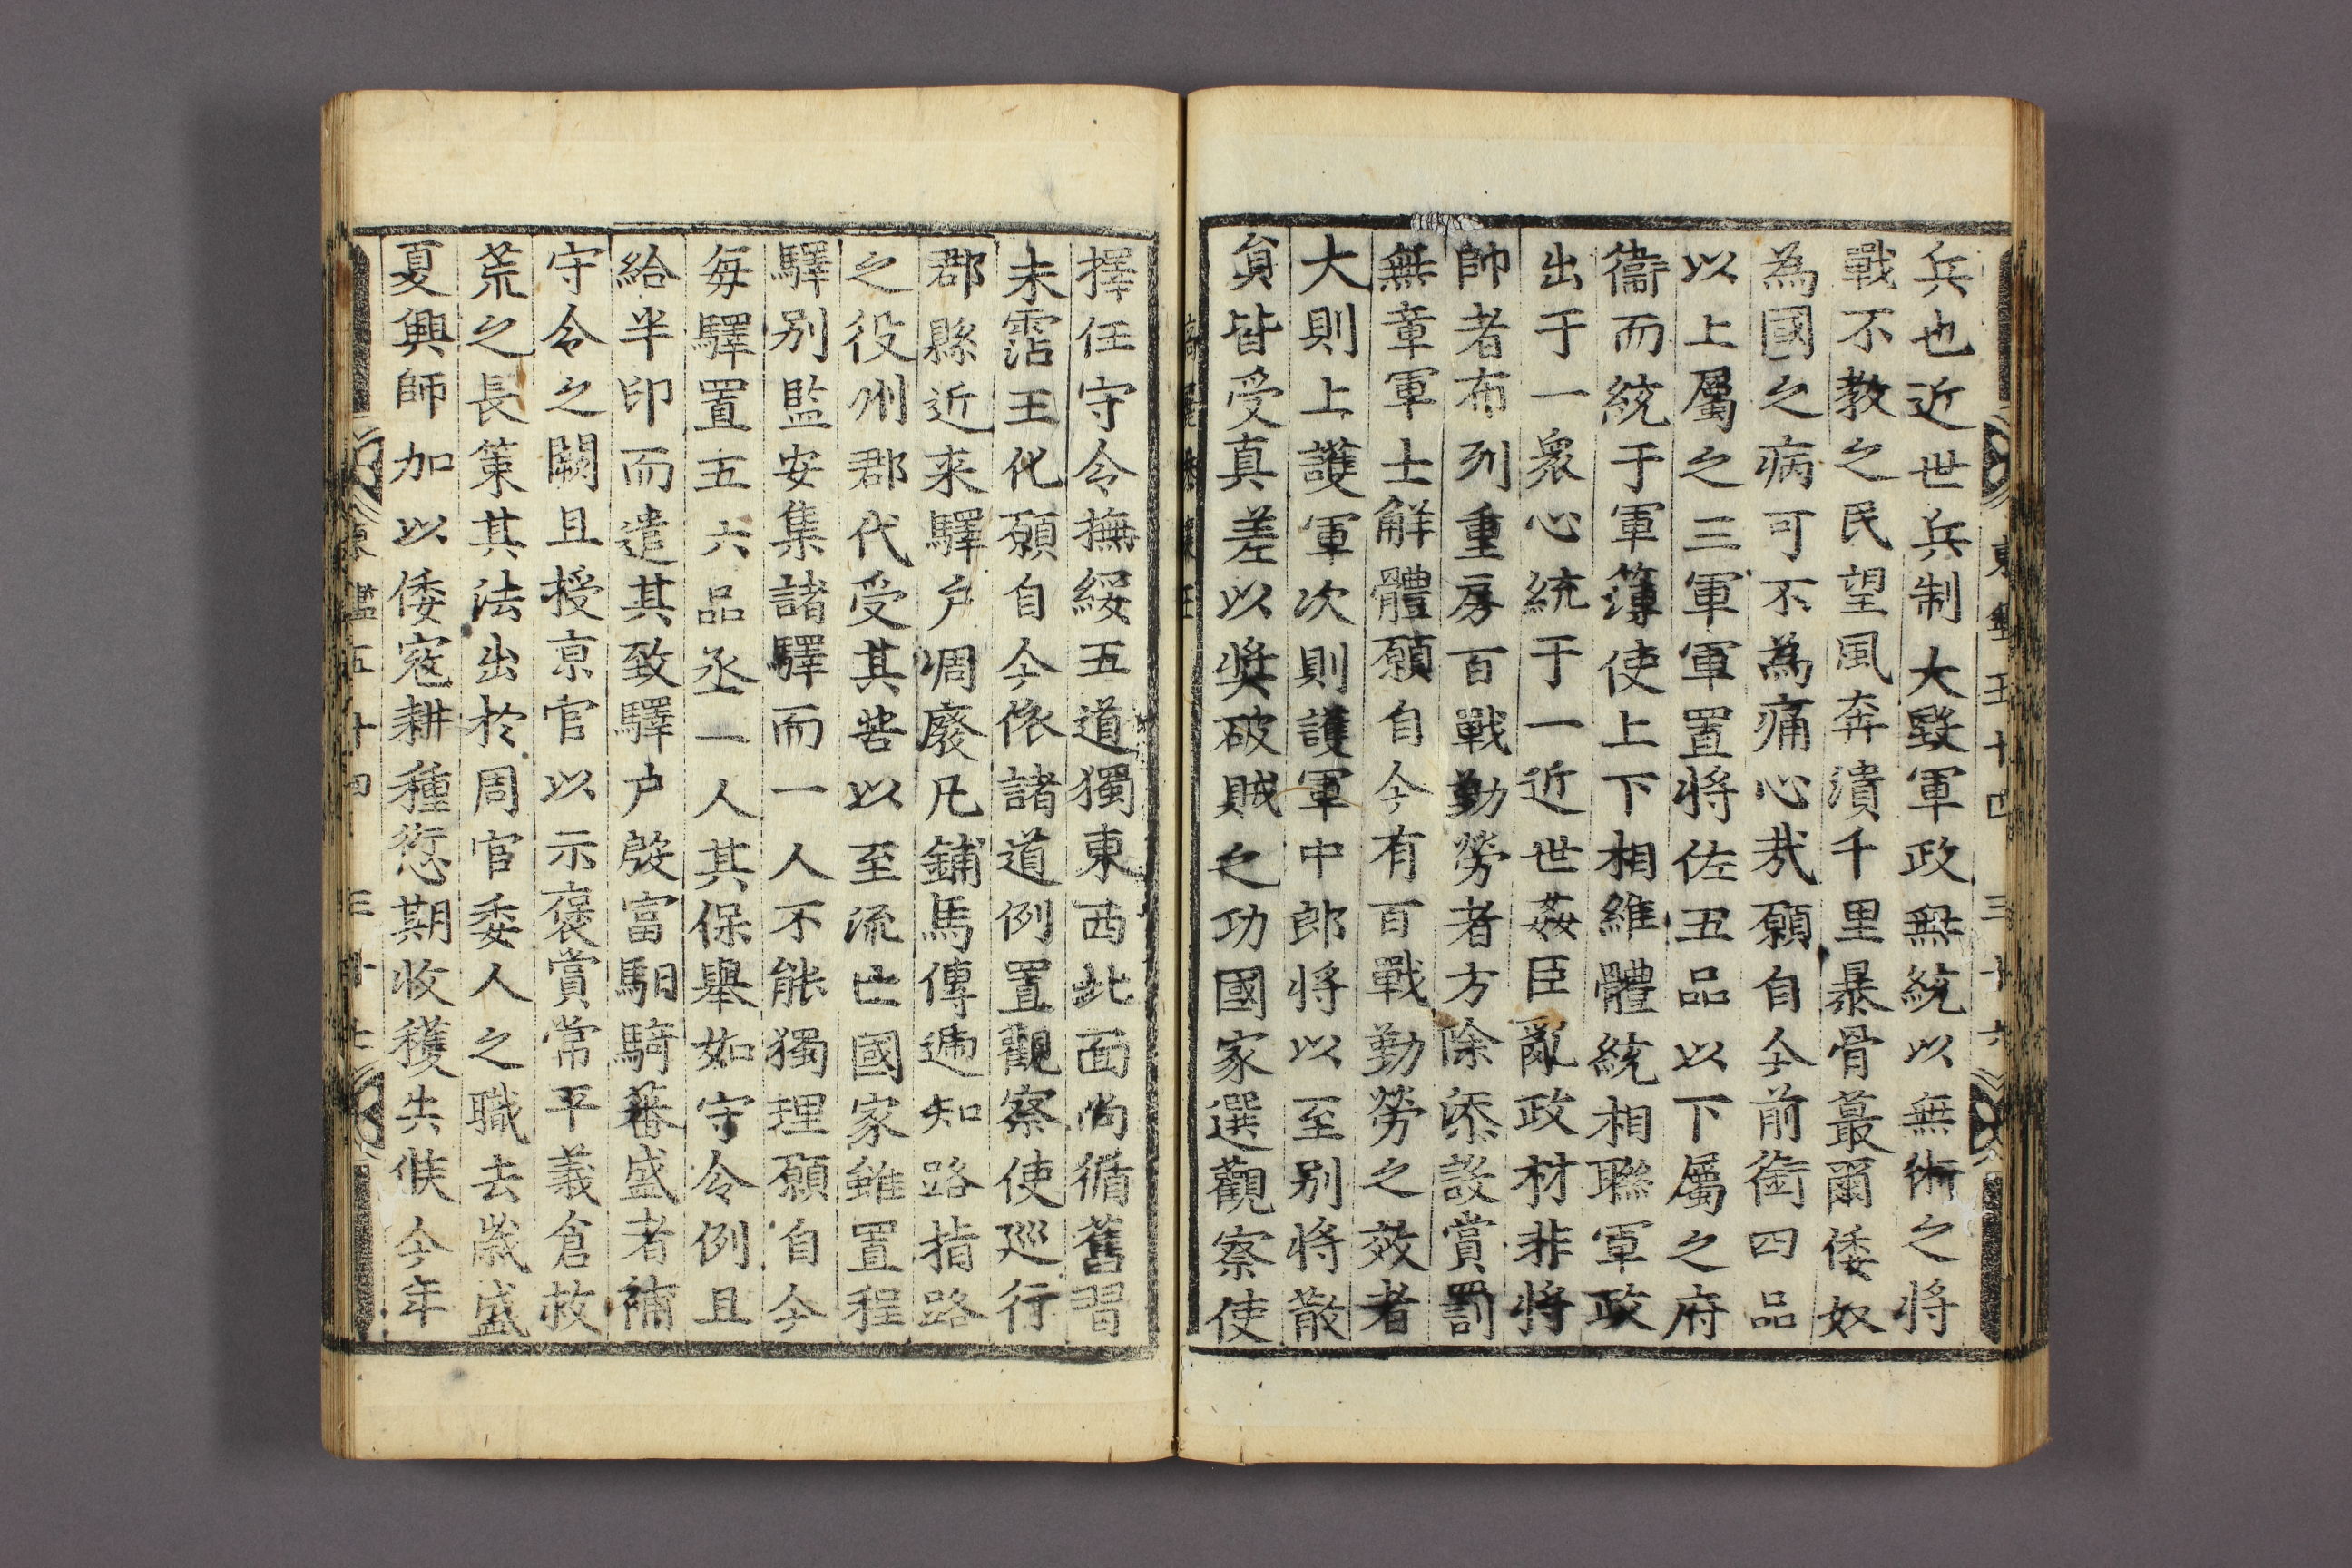 兵也近世兵制大毀軍政無統以無術之將
戰不教之民望風奔潰千里暴骨蕞爾倭奴
為國之病可不為痛心㢤願自今前銜四品
以上屬之三軍軍置將佐五品以下屬之府
衛而統于軍簿使上下相維體統相聯軍政
出于一衆心統于一近世姦臣亂政材非將
帥者布列重房百戰勤勞者方除添設賞罰
無章軍士解體願自今有百戰勤勞之效者
大則上護軍次則護軍中郎將以至别將散
貟皆受真差以奬破賊之功國家選觀察使
東鑑五十四 三十六
擇任守令撫綏五道獨東西北面尚循舊習
未霑王化願自今依諸道例置觀察使廵行
郡縣近来驛户凋廢凡鋪馬傳遞知路指路
之役州郡代受其苦以至流亡國家雖置程
驛别監安集諸驛而一人不能獨理願自今
每驛置五六品丞一人其保舉如守令例且
給半印而遣其致驛户殷富馹騎蕃盛者補
守令之闕且授京官以示褒賞常平義倉救
荒之長策其法出於周官委人之職去歲盛
夏興師加以倭寇耕種愆期收穫失候今年
東鑑五十四 三十七